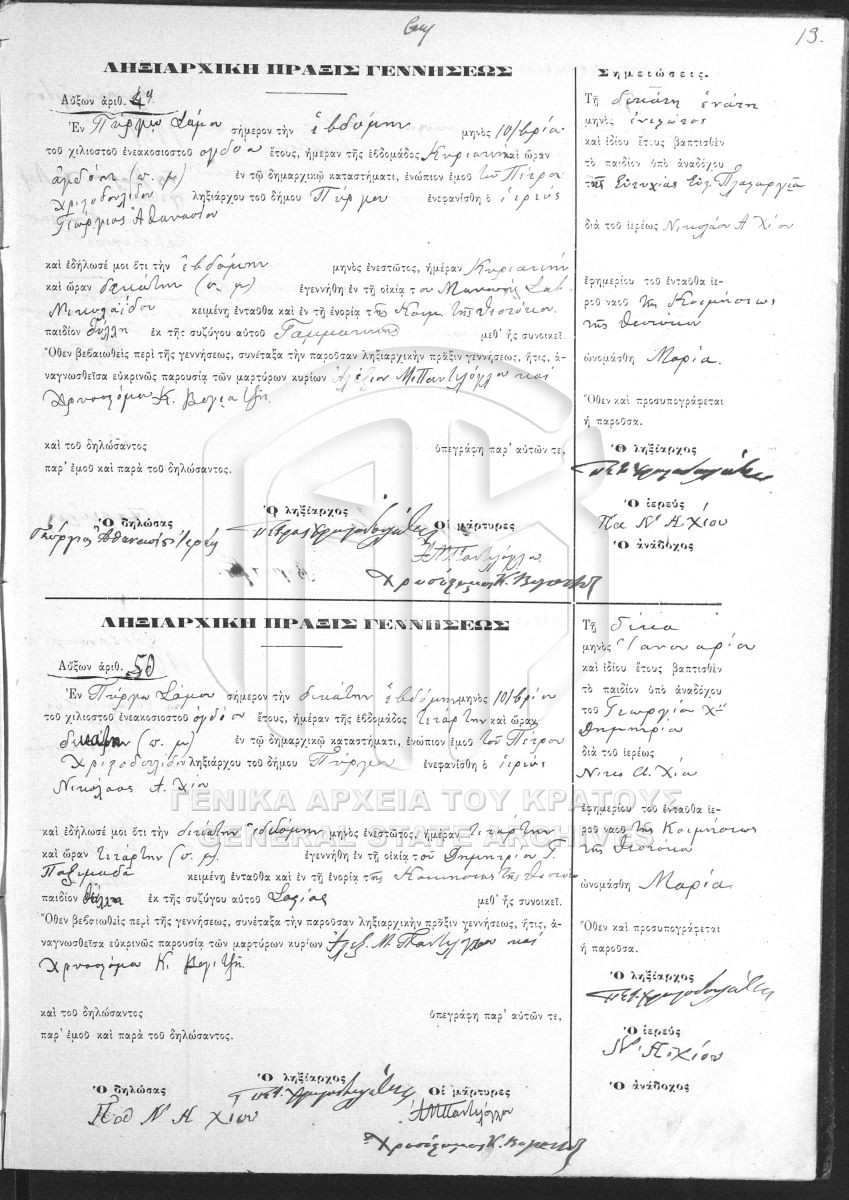 13.
ΛΗΞΙΑΡΧΙΚΗ ΠΡΑΞΙΣ ΓΕΝΝΗΣΕΩΣ
Αὔξων ἀριθ. 49.
Ἐν Πύργῳ Σάμου σήμερον τὴν ἑβδόμην μηνὸς 10/βρίου
τοῦ χιλιοστοῦ ἐνεακοσιοστοῦ ὀγδόου ἔτους, ἡμέραν τῆς ἑβδομάδος Κυριακὴν καὶ ὥραν
ὀγδόην (π. μ) ἐν τῷ δημαρχικῷ καταστήματι, ἐνώπιον ἐμοῦ τοῦ Πέτρου
ληξιάρχου τοῦ δήμου Πύργου ἐνεφανίσθη ὁ ἱερεὺς
Γεώργιος Ἀθανασίου
καὶ ἐδήλωσέ μοι ὅτι τὴν ἑβδόμην μηνὸς ἐνεστῶτος, ἡμέραν Κυριακὴν
καὶ ὥραν δεκάτην (π. μ) ἐγεννήθη ἐν τῇ οἰκίᾳ του
Νικολαΐδου κειμένῃ ἐνταῦθα καὶ ἐν τῇ ἐνορίᾳ τῆς Κοιμ τῆς Θεοτόκου
παιδίον θῆλυ ἐκ τῆς συζύγου αὐτοῦ μεθ᾽ ἧς συνοικεῖ.
Ὅθεν βεβαιωθεὶς περὶ τῆς γεννήσεως, συνέταξα τὴν παροῦσαν ληξιαρχικὴν πρᾶξιν γεννήσεως, ἥτις, ἀ-
ναγνωσθεῖσα εὐκρινῶς παρουσίᾳ τῶν μαρτύρων κυρίων Μ. Παντελόγλου καὶ
Χρυσοστόμου Κ.
καὶ τοῦ δηλώσαντος ὑπεγράφη παρ᾽ αὐτῶν τε,
παρ᾽ ἐμοῦ καὶ παρὰ τοῦ δηλώσαντος.
Ὁ δηλώσας Ὁ ληξίαρχος Οἱ μάρτυρες
Γεώργιος Ἀθανασίου Ἱερεὺς
Σημειώσεις.
Τῇ δεκάτῃ ἐνάτῃ
μηνὸς ἐνεστῶτος
καὶ ἰδίου ἔτους βαπτισθὲν
τὸ παιδίον ὑπὸ ἀναδόχου
τῆς Εὐτυχίας
διὰ τοῦ ἱερέως Νικολάου Α Χίου
ἐφημερίου τοῦ ἐνταῦθα ἱε-
ροῦ ναοῦ τῆς Κοιμήσεως
τῆς Θεοτόκου
ὠνομάσθη Μαρία.
Ὅθεν καὶ προσυπογράφεται
ἡ παροῦσα.
Ὁ ληξίαρχος
Ὁ ἱερεὺς
Πα Ν. Α. Χίου
Ὁ ἀνάδοχος
ΛΗΞΙΑΡΧΙΚΗ ΠΡΑΞΙΣ ΓΕΝΝΗΣΕΩΣ
Αὔξων ἀριθ. 50
Ἐν Πύργῳ Σάμου σήμερον τὴν δεκάτην ἑβδόμην μηνὸς 10/βρίου
τοῦ χιλιοστοῦ ἐνεακοσιοστοῦ ὀγδόου ἔτους, ἡμέραν τῆς ἑβδομάδος τετάρτην καὶ ὥραν
δεκάτην (π. μ) ἐν τῷ δημαρχικῷ καταστήματι, ἐνώπιον ἐμοῦ τοῦ Πέτρου
ληξιάρχου τοῦ δήμου Πύργου ἐνεφανίσθη ὁ ἱερεὺς
Νικόλαος Α. Χίου
καὶ ἐδήλωσέ μοι ὅτι τὴν δεκάτην ἑβδόμην μηνὸς ἐνεστῶτος, ἡμέραν τετάρτην
καὶ ὥραν τετάρτην (π. μ). ἐγεννήθη ἐν τῇ οἰκίᾳ τοῦ Δημητρίου Γ.
Παξιμαδᾶ κειμένῃ ἐνταῦθα καὶ ἐν τῇ ἐνορίᾳ τῆς Κοιμήσεως τῆς Θεοτόκου
παιδίον θῆλυ ἐκ τῆς συζύγου αὐτοῦ Σοφίας μεθ᾽ ἧς συνοικεῖ.
Ὅθεν βεβαιωθεὶς περὶ τῆς γεννήσεως, συνέταξα τὴν παροῦσαν ληξιαρχικὴν πρᾶξιν γεννήσεως, ἥτις, ἀ-
ναγνωσθεῖσα εὐκρινῶς παρουσίᾳ τῶν μαρτύρων κυρίων Ἀλεξ. Μ. Παντελόγλου καὶ
Χρυσοστόμου Κ.
καὶ τοῦ δηλώσαντος ὑπεγράφη παρ᾽ αὐτῶν τε,
παρ᾽ ἐμοῦ καὶ παρὰ τοῦ δηλώσαντος.
Ὁ δηλώσας Ὁ ληξίαρχος Οἱ μάρτυρες
Ν. Α Χίου
Τῇ δεκάτῃ
μηνὸς Ἰανουαρίου
καὶ ἰδίου ἔτους βαπτισθὲν
τὸ παιδίον ὑπὸ ἀναδόχου
τοῦ Γεωργίου Χ"
Δημητρίου
διὰ τοῦ ἱερέως
Νικο Α. Χίου
ἐφημερίου τοῦ ἐνταῦθα ἱε-
ροῦ ναοῦ τῆς Κοιμήσεως
τῆς Θεοτόκου
ὠνομάσθη Μαρία
Ὅθεν καὶ προσυπογράφεται
ἡ παροῦσα.
Ὁ ληξίαρχος
Ὁ ἱερεὺς
Ν. Α. Χίου
Ὁ ἀνάδοχος
ΓΕΝΙΚΑ ΑΡΧΕΙΑ ΤΟΥ ΚΡΑΤΟΥΣ
GENERAL STATE ARCHIVES